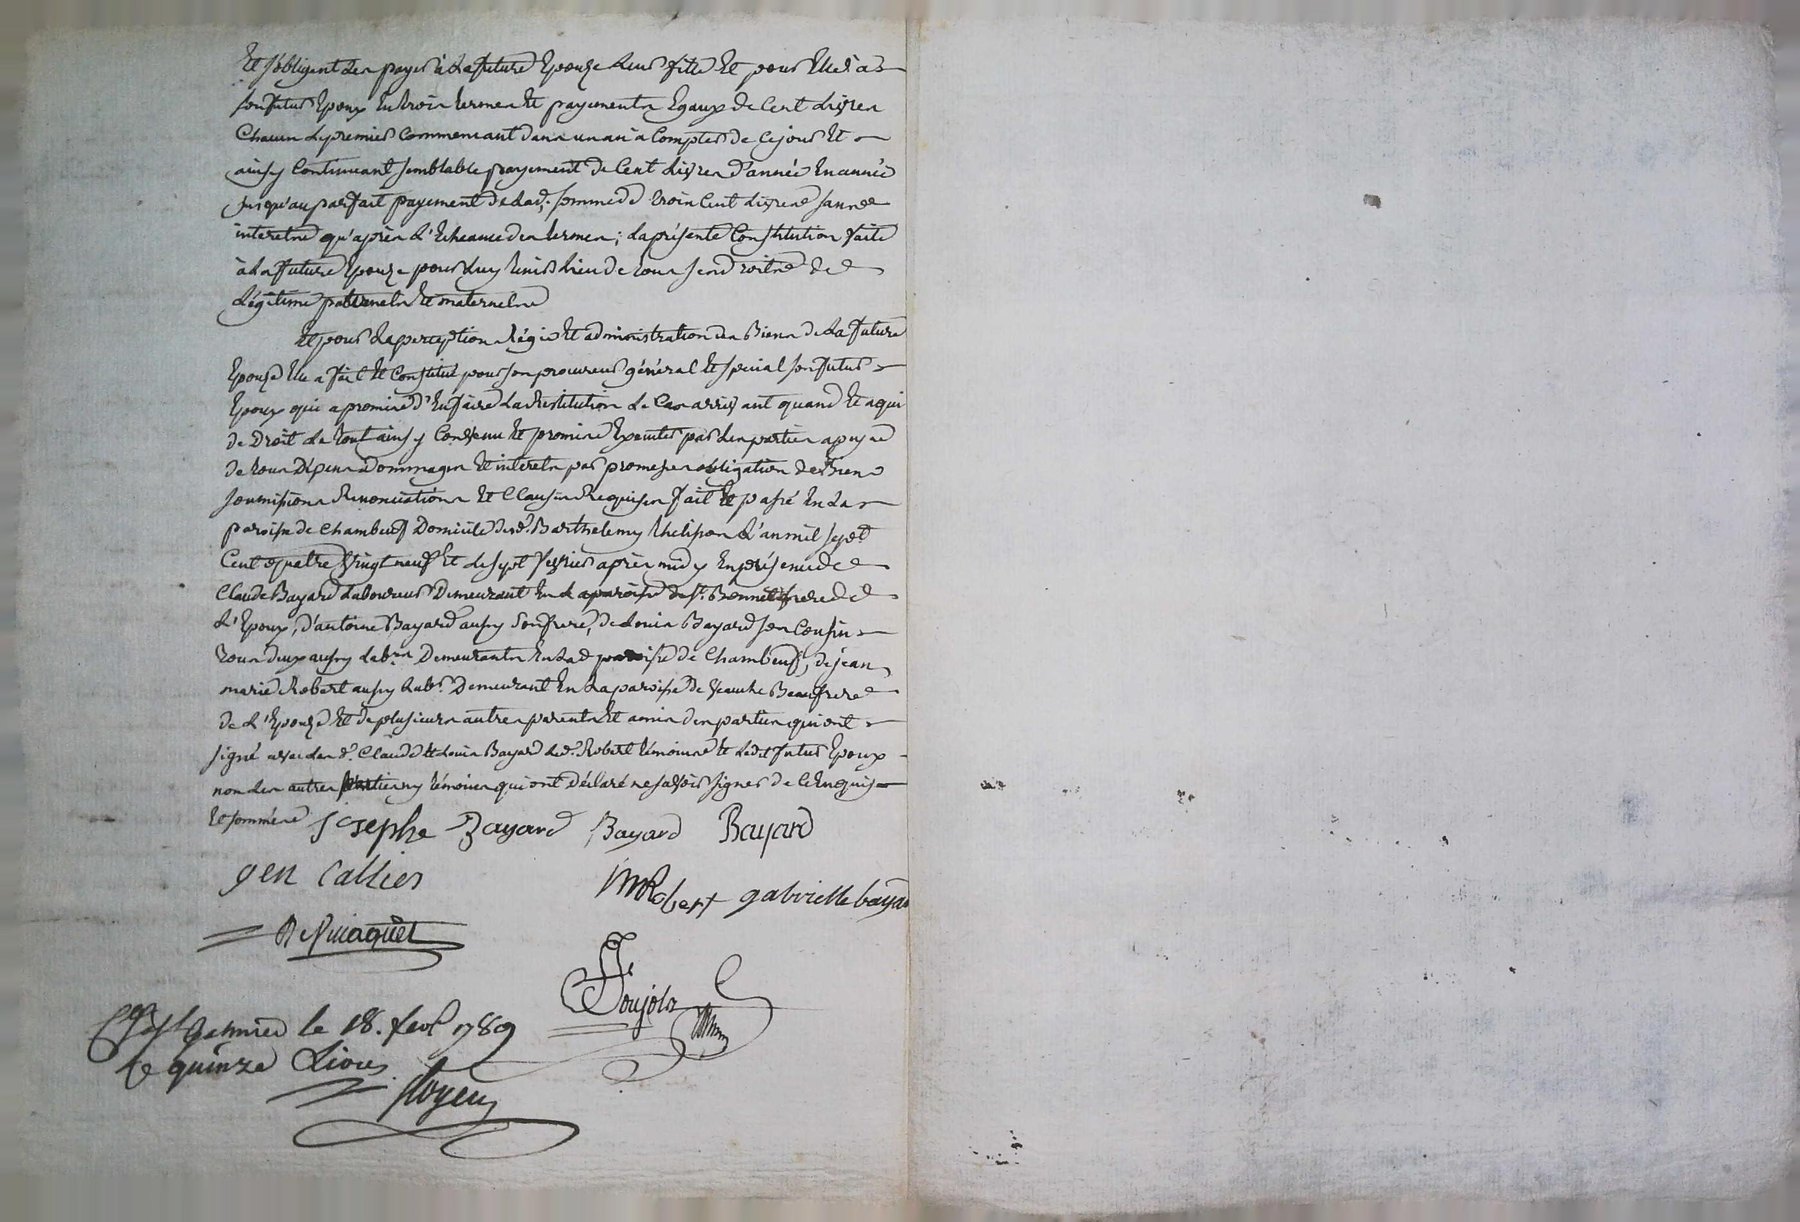 et s'obligent de payer à la future Epouze leur fille et pour elle à
son futur Epoux en trois termes et payements Egaux de Cent Livres
Chacun le premier Commencant dans un an à Compter de Ce jour et
ainsy Continuant semblable payement de Cent Livres d'année En année
jusqu'au parfait payement de lad. somme de trois Cent Livres sans
interets qu'après l'Echeance des termes; la présente Constitution faite
à la future Epouze pour luy tenir Lieu de tous ses droits de
Légitime paternels et maternels
Et pour la perception Régie et administration des Biens de la future
Epouze Elle a fait et Constitué pour son procureur général et special son futur
Epoux qui a promis d'En faire la Restitution le Cas arrivant quand et a qui
de Droit le tout ainsy Convenu et promis Executer par les parties a peyne
de tous Dépens Dommages et interets par promesses obligation de Biens
soumissions Renonciations et Clauses Requises fait et passé En la
paroisse de Chambeuf Domicile dud. Barthelemy thelisson L'an mil sept
Cent quatre vingt neuf et le sept fevrier après midy En présence de
Claude Bayard Laboureur Demeurant En la paroisse de St. Bonnet frere de
L'Epoux, d'antoine Bayard aussy son frere, de Louis Bayard son Cousin
tous deux aussy lab.rs Demeurants En lad. paroisse de Chambeuf, de jean
marie Robert aussy lab.r Demeurant En la paroisse de veauche Beaufrere
de L'Epouze et de plusieurs autres parents et amis des parties qui ont
signé avec les d. Claude et Louis Bayard led. Robert témoins et ledit futur Epoux
non les autres parties ny témoins qui ont déclaré ne savoir signer de Ce Enquis
et sommés josephe Bayard Bayard Bayard
gen Callier
JM Robert gabrielle bayard
Goujola
le 18. fevr 1789
quinze Livres